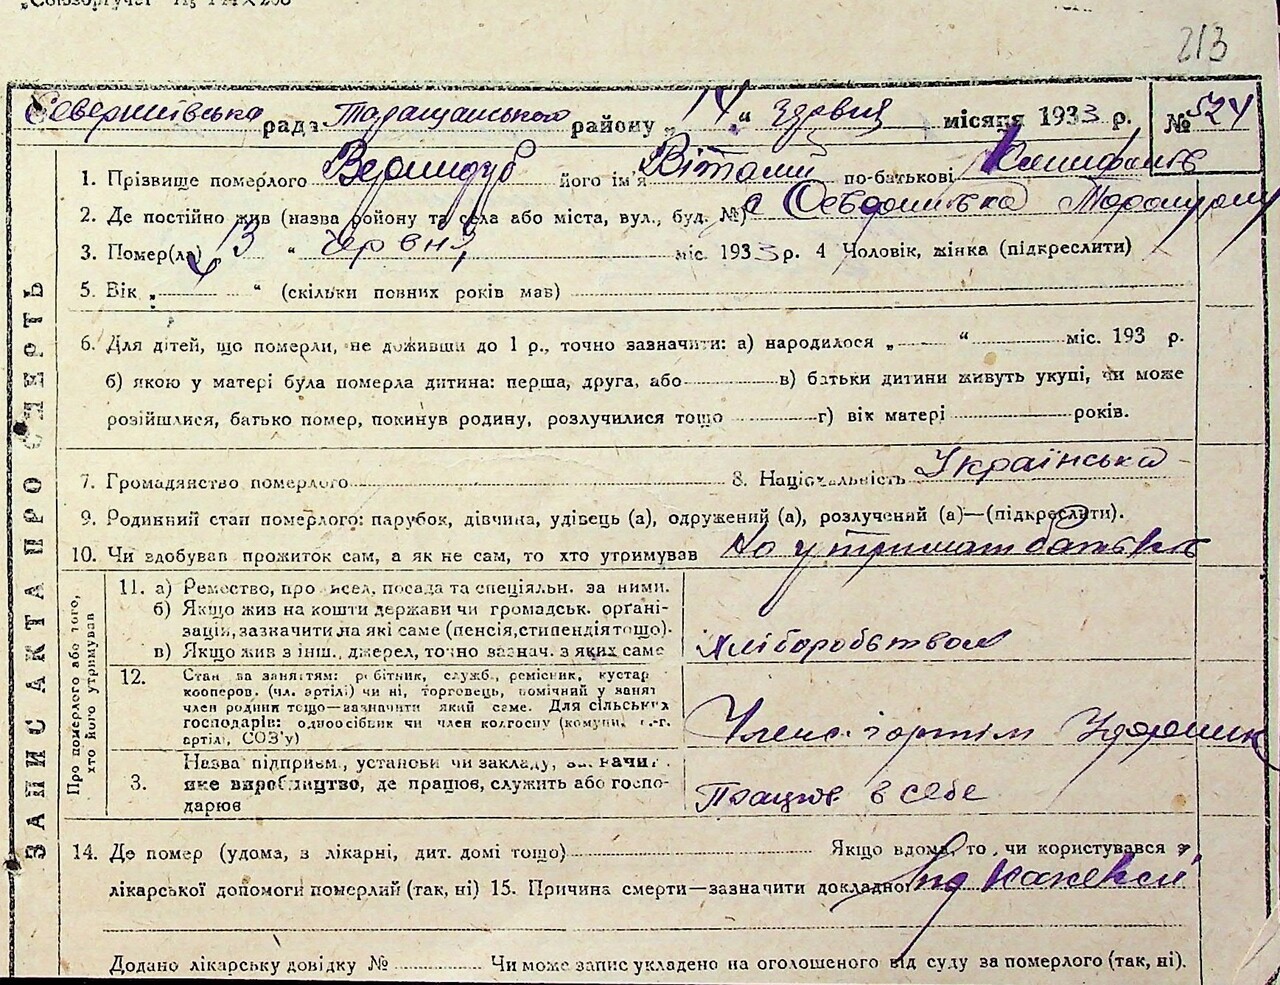 213
рада Таращанського району „14“ червня місяця 1933 р. № 524
1. Прізвище померлого Вернидуб його ім'я Віталий по-батькові
2. Де постійно жив (назва району та села або міста, вул., буд. №) с
3. Помер(ла) 13 “ червня міс. 1933 р. 4 Чоловік, жінка (підкреслити)
5. Вік „ “ (скільки повних років мав)
6. Для дітей, що померли, не доживши до 1 р., точно зазначити: а) народилося „ “ міс. 193 р.
б) якою у матері була померла дитина: перша, друга, або в) батьки дитини живуть укупі, чи може
розійшлися, батько помер, покинув родину, розлучилися тощо г) вік матері років.
7. Громадянство померлого 8. Національність Українська
9. Родинний стап померлого: парубок, дівчина, удівець (а), одружений (а), розлучений (а)—(підкреслити).
10. Чи здобував прожиток сам, а як не сам, то хто утримував На утриман батьків
ЗАПИС АКТА ПРО СМЕРТЬ
Про померлого або того, хто його утримував
11. а) Ремество, професі, посада та спеціяльн. за ними.
б) Якщо жив на кошти держави чи громадськ. орґані-
зацій, зазначити на які саме (пенсія, стипендія тощо).
в) Якщо жив з інш. джерел, точно зазнач. з яких саме Хліборобством
12. Стан за заняттям: робітник, служб., ремісник, кустар
кооперов. (чл. артілі) чи ні, торговець, помічний у занят
член родини тощо—зазначити який саме. Для сільських
господарів: одноосібник чи член колгоспу (комуни, с.-г.
артілі, СОЗ'у) Член
Назва підприєм., установи чи закладу, зазначит.
3. яке виробництво, де працював, служить або госпо-
дарює Працює в себе
14. Де помер (удома, з лікарні, дит. домі тощо) Якщо вдома, то чи користувався з
лікарської допомоги померлий (так, ні) 15. Причина смерти—зазначити докладно
Додано лікарську довідку № Чи може запис укладено на оголошеного від суду за померлого (так, ні).